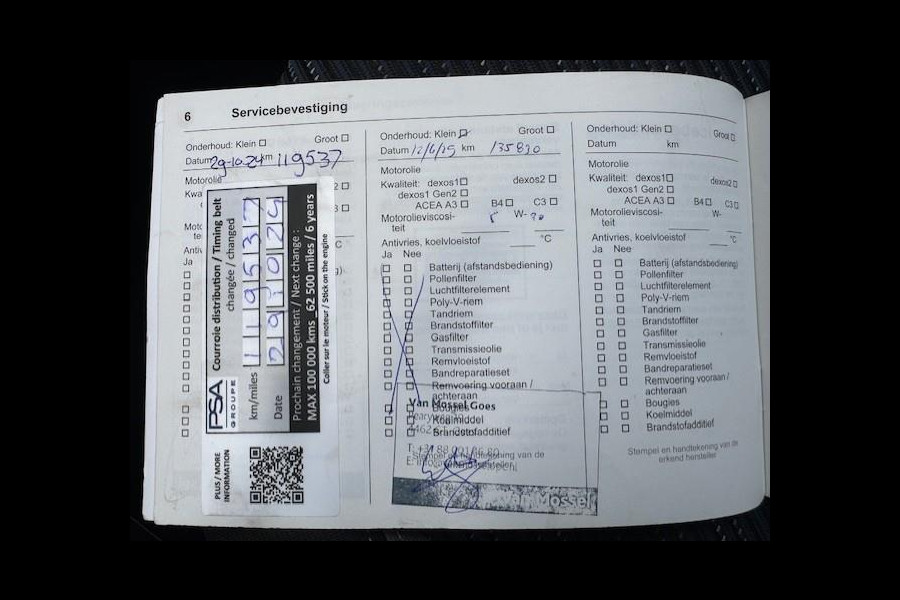 6 Servicebevestiging
Onderhoud: Klein Groot
Datum 29-10-24 km 119537
Motorolie
PSA
GROUPE
Courroie distribution / Timing belt
changée / changed
km/miles 119537
Date 291024
Prochain changement / Next change :
MAX 100 000 kms_ 62 500 miles / 6 years
Coller sur le moteur / Stick on the engine
PLUS / MORE
INFORMATION
Ja
Onderhoud: Klein Groot
Datum 12/6/25 km 135830
Motorolie
Kwaliteit: dexos1 dexos2
dexos1 Gen2
ACEA A3 B4 C3
Motorolieviscosi-
teit W-
Antivries, koelvloeistof °C
Ja Nee
Batterij (afstandsbediening)
Pollenfilter
Luchtfilterelement
Poly-V-riem
Tandriem
Brandstoffilter
Gasfilter
Transmissieolie
Remvloeistof
Bandreparatieset
Remvoering vooraan /
achteraan
Bougies
Koelmiddel
Brandstofadditief
Van Mossel Goes
Stempel en handtekening van de
erkend hersteller
Van Mossel
Onderhoud: Klein Groot
Datum km
Motorolie
Kwaliteit: dexos1 dexos2
dexos1 Gen2
ACEA A3 B4 C3
Motorolieviscosi- W-
teit
Antivries, koelvloeistof °C
Ja Nee
Batterij (afstandsbediening)
Pollenfilter
Luchtfilterelement
Poly-V-riem
Tandriem
Brandstoffilter
Gasfilter
Transmissieolie
Remvloeistof
Bandreparatieset
Remvoering vooraan /
achteraan
Bougies
Koelmiddel
Brandstofadditief
Stempel en handtekening van de
erkend hersteller